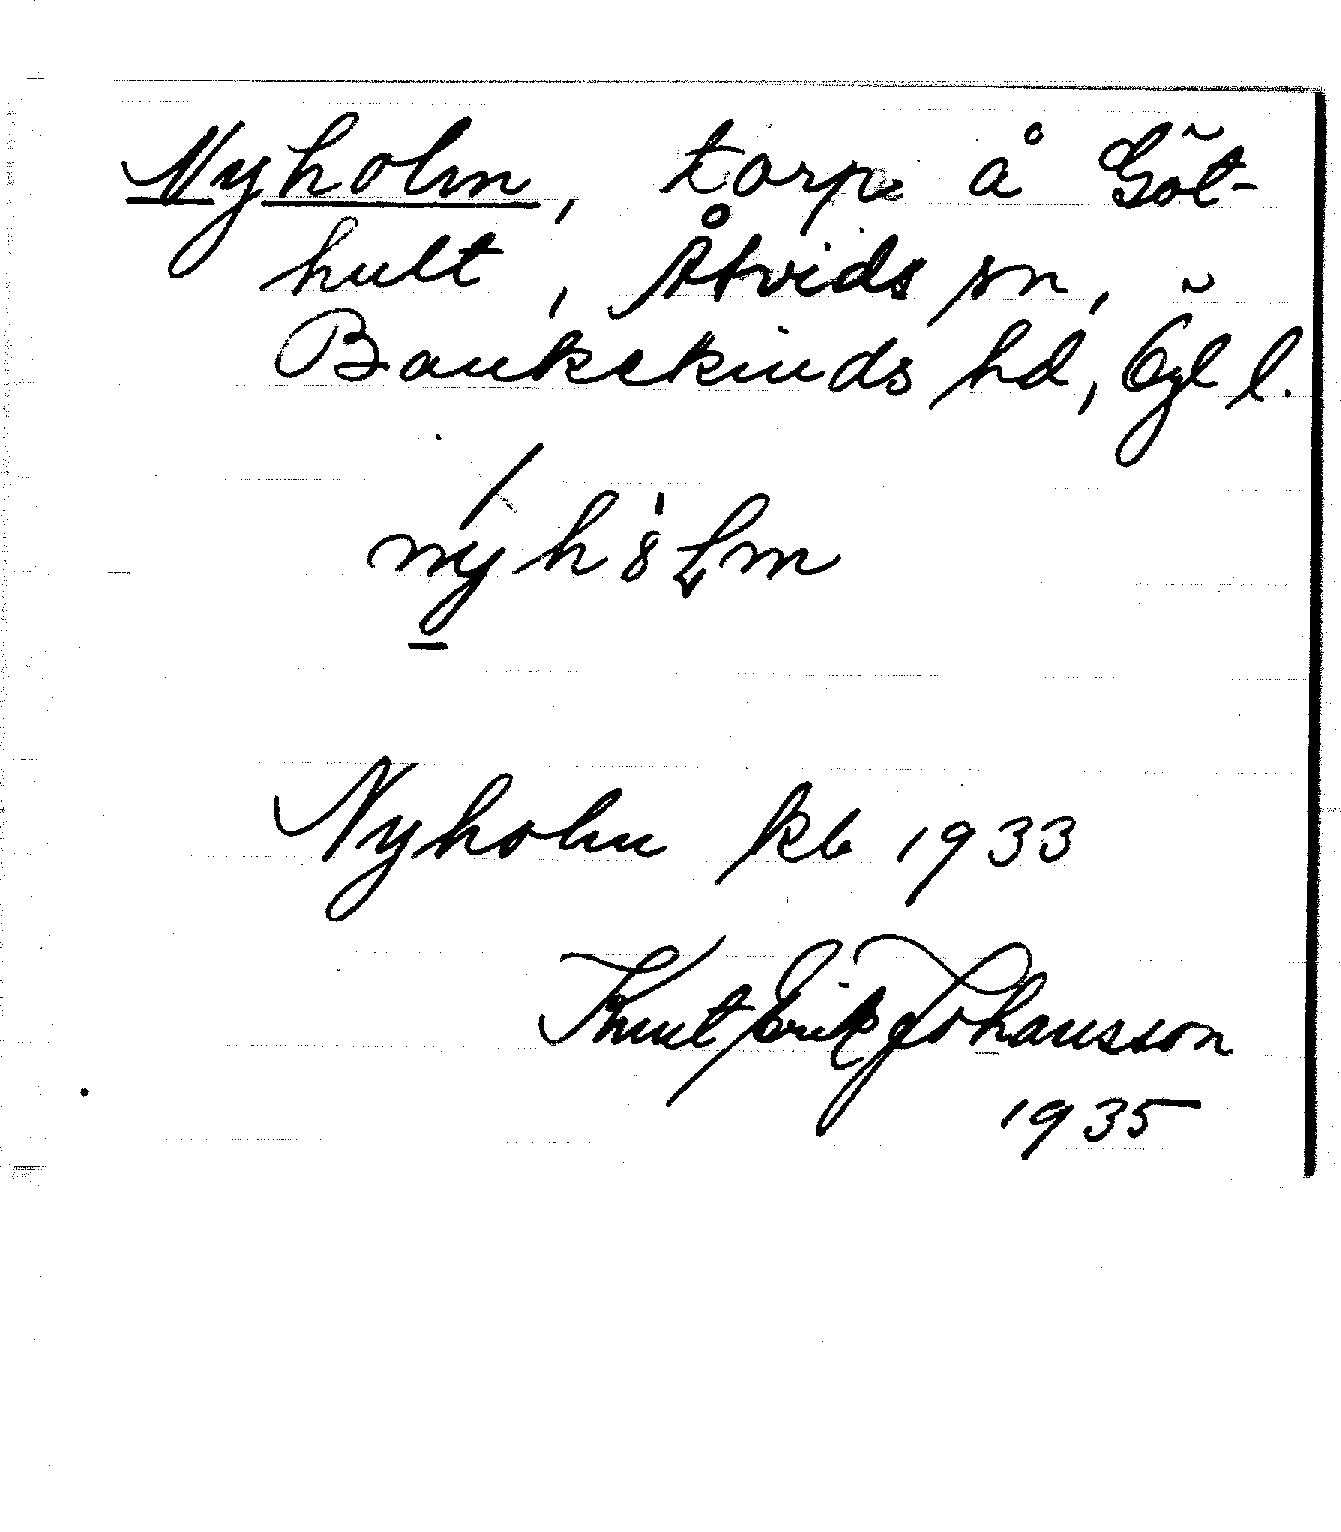 Nyholm, torp å Göt-
hult, Åtvids sn,
Bankekinds hd, Ögl l.
Nyholm kb 1933
Knut Erik Johansson
1935